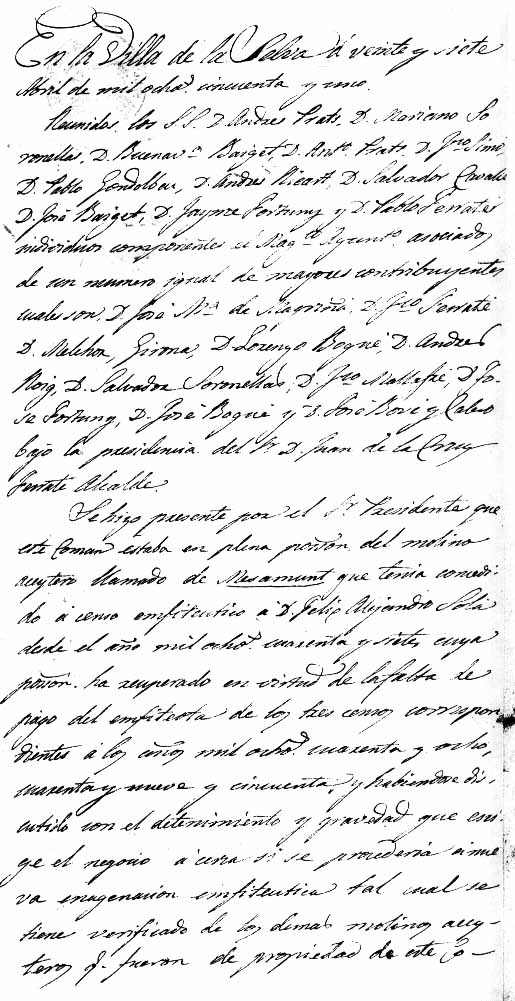 En la Villa de la Selva á veinte y siete
Abril de mil ochos. cincuenta y uno.
Reunidos los S.S. D. Andres Prats, D. Mariano So
ronellas, D. Buenav.ª Baiget, D. Ant.º Prats, D. Fco Simó
D. Pablo Gondolbeu, D. Andrés Ricart, D. Salvador Cavallé
D. José Baiget, D. Jayme Fortuny y D. Pablo Ferraté
individuos componentes el Mag.co Ayunt.º asociados
de un numero igual de mayores contribuyentes
cuales son, D. José M.ª de Magriñá, D. Fco Ferraté
D. Melchor Girona, D. Lorenzo Bogué, D. Andres
Roig, D. Salvador Soronellas, D. Fco Mallafré, D. Jo-
se Fortuny, D. José Bogué y D. José
bajo la presidencia del Sr. D. Juan de la Cruz
Ferrate Alcalde.
Se hizo presente por el Sr. Presidente que
este Comun estaba en plena poseson del molino
aceytero llamado de Mesamunt que tenia concedi-
do á censo emfiteutico á D. Felix Alejandro Solá
desde el año mil ochos. cuarenta y siete, cuya
poseson. ha recuperado en virtud de la falta de
pago del emfiteota de los tres censos correspon
dientes á los años mil ochos. cuarenta y ocho,
cuarenta y nueve y cincuenta, y habiendose dis-
cutido con el detenimiento y gravedad que exi-
ge el negocio á cerca si se procederia á nue
va enagenacion emfiteutica tal cual se
tiene verificado de los demas molinos acey-
teros q. fueron de propiedad de este Co-